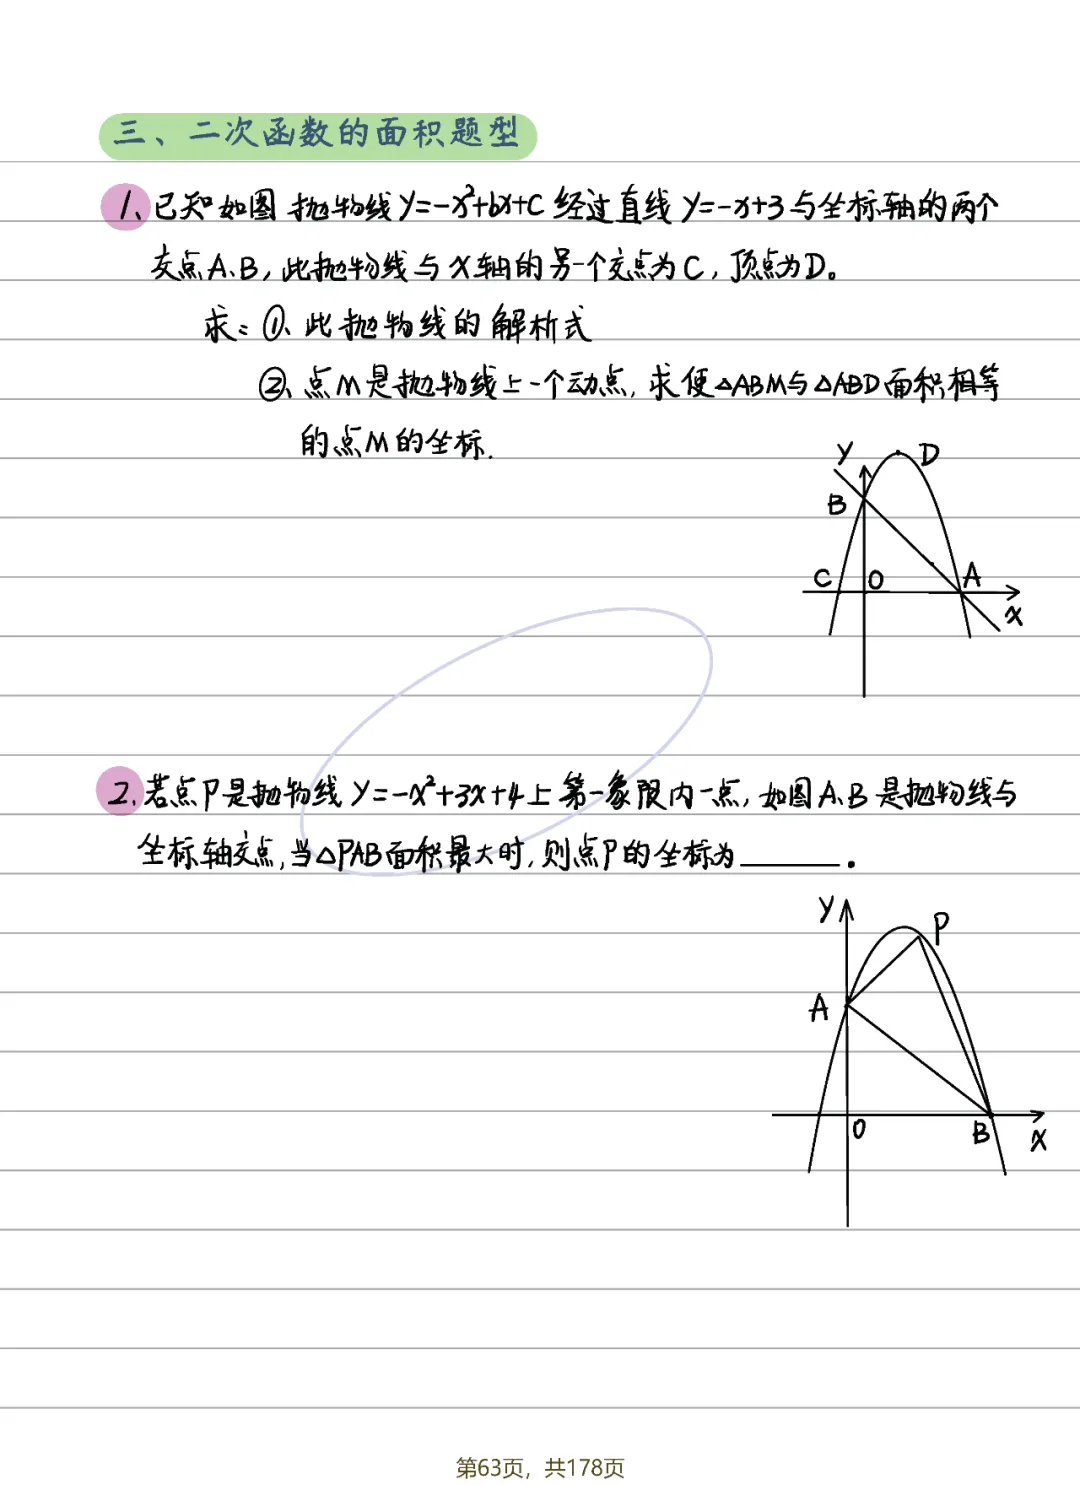 三、二次函数的面积题型
1、已知如图 抛物线y=-x²+bx+c 经过直线 y=-x+3与坐标轴的两个
交点A、B，此抛物线与x轴的另一个交点为C，顶点为D。
求：①、此抛物线的解析式
②、点M是抛物线上一个动点，求使△ABM与△ABD面积相等
的点M的坐标.
y D
B
C O A
x
2、若点P是抛物线y=-x²+3x+4上第一象限内一点，如图A、B是抛物线与
坐标轴交点，当△PAB面积最大时，则点P的坐标为______。
y P
A
O B x
第63页，共178页